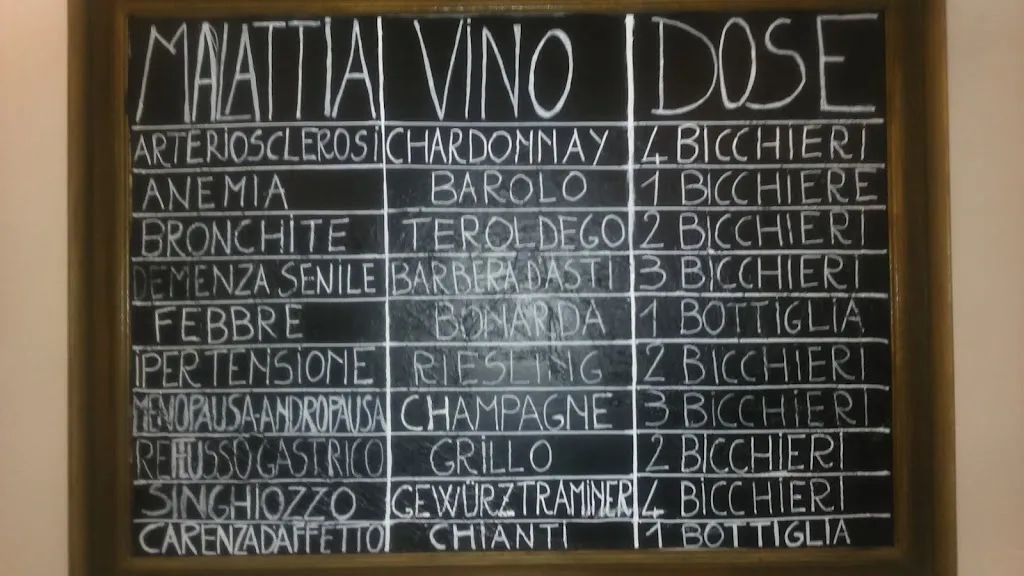 MALATTIA VINO DOSE
ARTERIOSCLEROSI CHARDONNAY 4 BICCHIERI
ANEMIA BAROLO 1 BICCHIERE
BRONCHITE TEROLDEGO 2 BICCHIERI
DEMENZA SENILE BARBERA DASTI 3 BICCHIERI
FEBBRE BONARDA 1 BOTTIGLIA
IPERTENSIONE RIESLING 2 BICCHIERI
MENOPAUSA-ANDROPAUSA CHAMPAGNE 3 BICCHIERI
REFLUSSO GASTRICO GRILLO 2 BICCHIERI
SINGHIOZZO GEWÜRZTRAMINER 4 BICCHIERI
CARENZA DAFFETTO CHIANTI 1 BOTTIGLIA